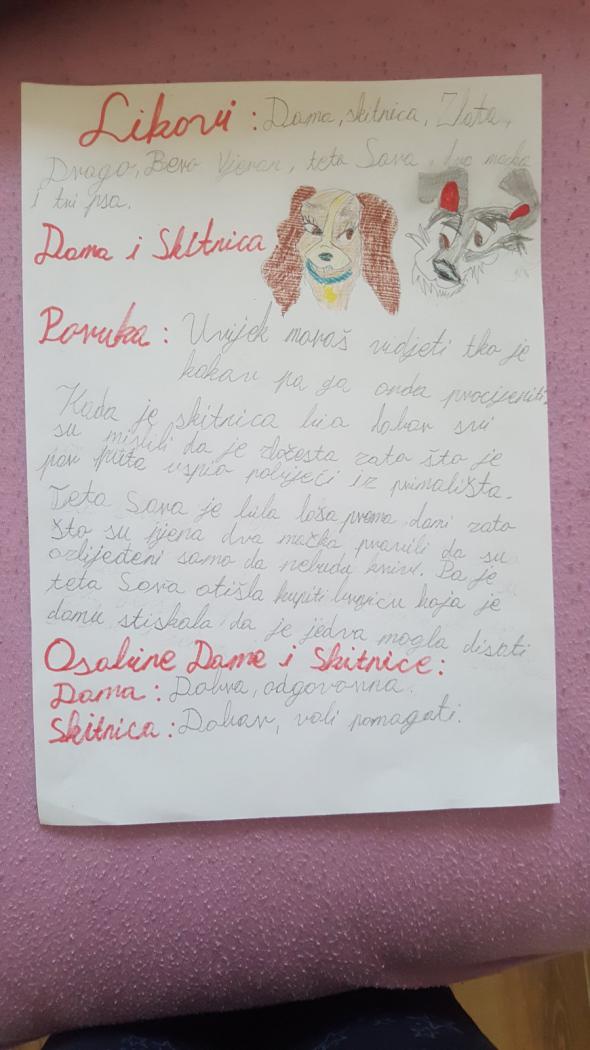 Likovi : Dama, skitnica, Zlata,
Drago, Bero Vjeran, teta Sara, dva mačka
i tri psa.
Dama i Skitnica
Poruka : Uvijek moraš vidjeti tko je
kakav pa ga onda procijeniti.
Kada je skitnica bia dobar svi
su mislili da je zločesta zato što je
par puta uspio pobijeći iz primališta.
Teta Sara je bila loša prema dami zato
što su njena dva mačka pravili da su
ozlijeđeni samo da nebudu krivi. Pa je
teta Sara otišla kupiti brnjicu koja je
damu stiskala da je jedva mogla disati
Osobine Dame i Skitnice:
Dama : Dobra, odgovorna.
Skitnica : Dobar, voli pomagati.